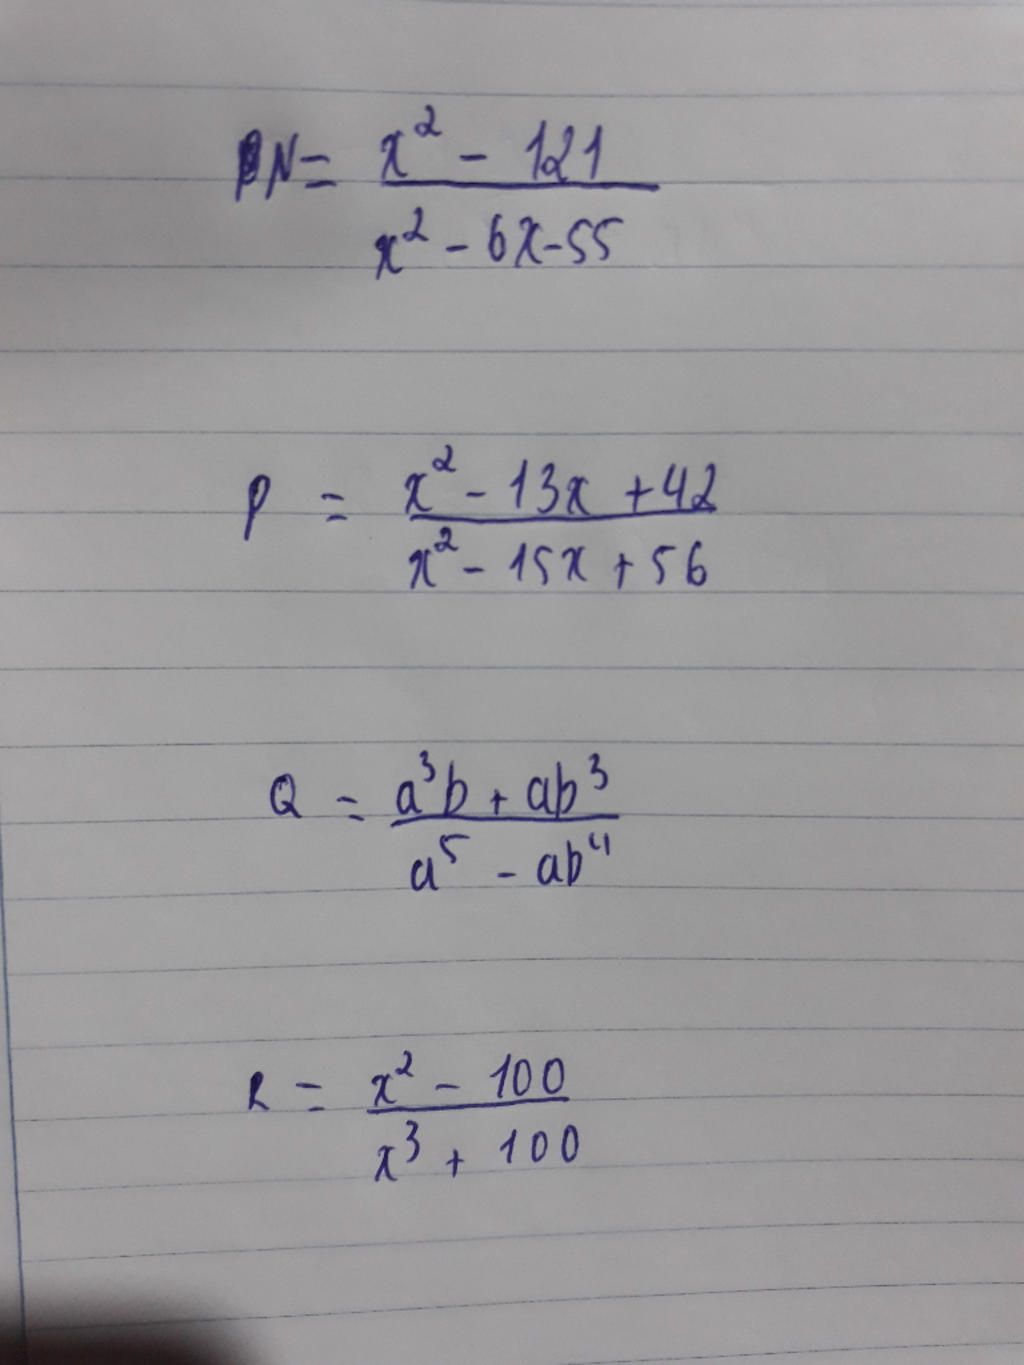 N = x² - 121
x² - 6x - 55
P = x² - 13x + 42
x² - 15x + 56
Q = a³b + ab³
a⁵ - ab⁴
R = x² - 100
x³ + 100